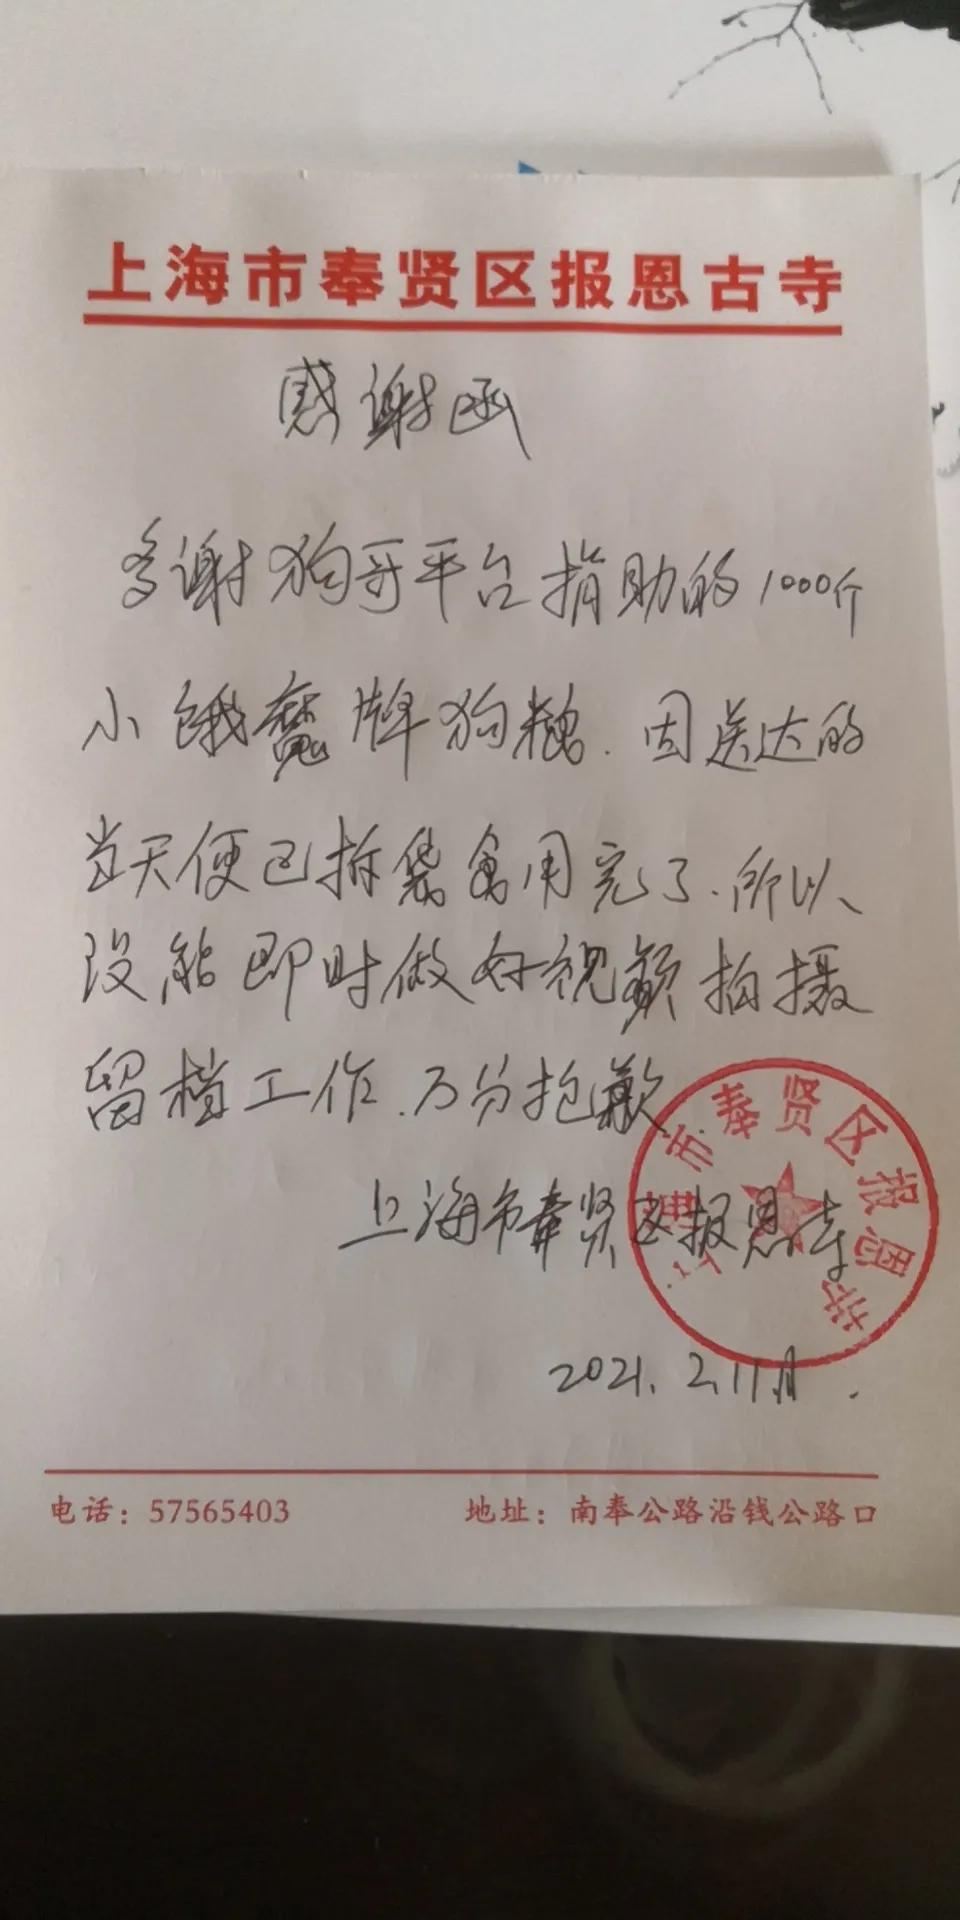 上海市奉贤区报恩古寺
感谢函
多谢狗哥平台捐助的1000斤
小饿魔牌狗粮.因送达的
当天便已拆袋食用完了.所以
没能即时做好视频拍摄
留档工作.万分抱歉.
上海市奉贤区报恩寺
上海市奉贤区报恩寺
2021.2.11月.
电话：57565403 地址：南奉公路沿钱公路口